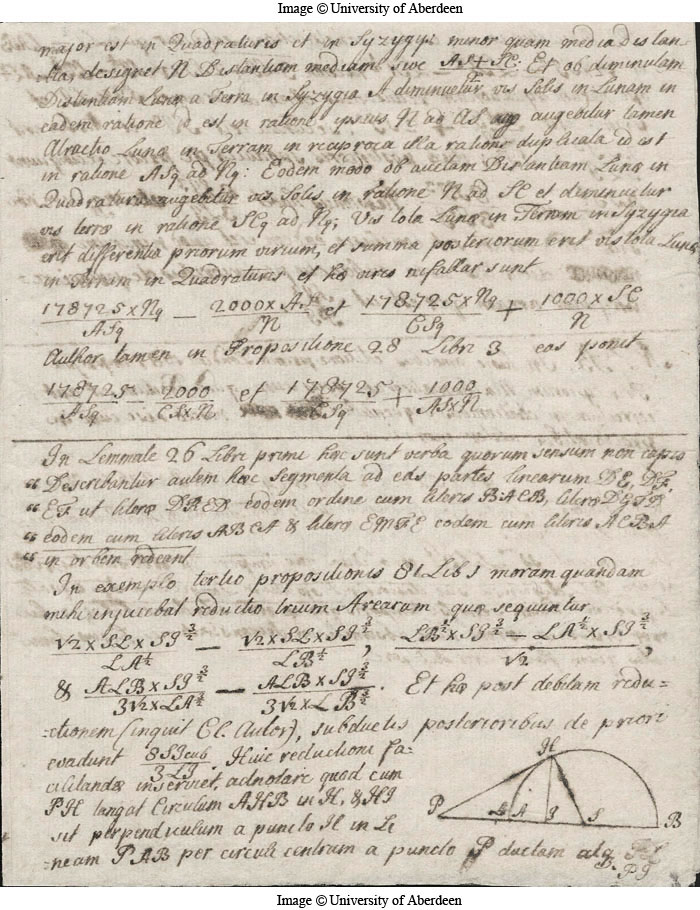 Image © University of Aberdeen
major est in Quadraturis et in Syzygys minor quam media distan
tia, designet N Distantiam mediam sive AS+SC: Et ob diminutam
Distantiam Lunæ a Terra in Syzygia A diminuetur vis Solis in Lunam in
eadem ratione id est in ratione ipsius N ad AS, augebitur tamen
Atractio Lunæ in Terram in reciproca illa ratione duplicata id est
in ratione ASq ad Nq: Eodem modo ob auctam Distantiam Lunæ in
Quadratura augebitur vis Solis in ratione N ad SC et diminuetur
vis terræ in ratione SCq ad Nq; Vis tota Lunæ in Terram in Syzygia
erit differentia priorum virium, et summa posteriorum erit vis tota Lunæ
in Terram in Quadraturis et hæ vires ni fallar sunt
178725×Nq/ASq − 2000×AS/N et 178725×Nq/CSq + 1000×SC/N
Author tamen in Propositione 28 Libri 3 eos ponit
178725/ASq 2000/CS×N et 178725/CSq + 1000/AS×N
In Lemmate 26 Libri primi hæc sunt verba quorum sensum non capio
“ Describantur autem hæc segmenta ad eas partes linearum DE, DF,
“ EF ut literæ DRED eodem ordine cum literis BACB, literæ DGFD,
“ eodem cum literis ABCA & literæ EMFE eodem cum literis ACBA
“ in orbem redeant
In exemplo tertio propositionis 81 Lib 1 moram quandam
mihi injiciebat reductio trium Arearum quæ sequuntur
√2×SL×SI^3/2 / LA^1/2 − √2×SL×SI^3/2 / LB^1/2, LB^1/2×SI^3/2 − LA^1/2×SI^3/2 / √2,
& ALB×SI^3/2 / 3√2×LA^3/2 − ALB×SI^3/2 / 3√2×LB^3/2. Et hæ post debitam redu-
-ctionem (inquit Cl. Autor), subductis posterioribus de priori
evadunt 8SI cub/3LI. Huic reductioni fa-
cilitandæ inserviet, adnotare quod cum
PH tangat Circulum AHB in H, & HI
sit perpendiculum a puncto H in Li
neam PAB per circuli centrum a puncto P ductam
H
P L A I S B
Image © University of Aberdeen